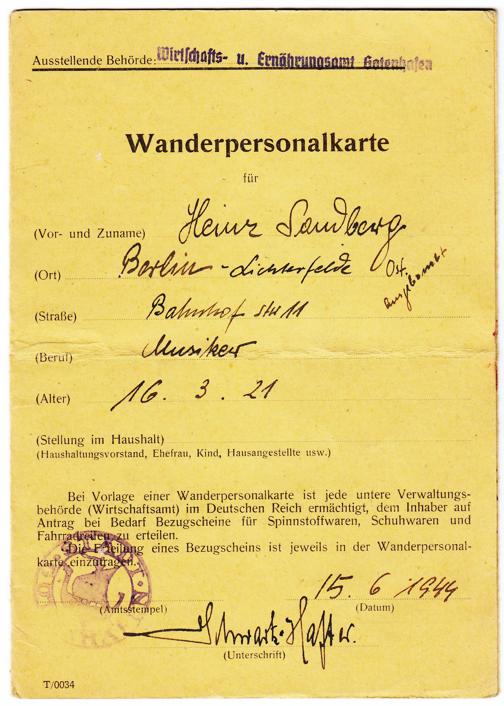 Ausstellende Behörde: Wirtschafts- u. Ernährungsamt Gotenhafen
Wanderpersonalkarte
für
(Vor- und Zuname) Heinz Sandberg
(Ort) Berlin - Lichterfelde Ost.
ausgebombt
(Straße) Bahnhof str 11
(Beruf) Musiker
(Alter) 16. 3. 21
(Stellung im Haushalt)
(Haushaltungsvorstand, Ehefrau, Kind, Hausangestellte usw.)
Bei Vorlage einer Wanderpersonalkarte ist jede untere Verwaltungs-
behörde (Wirtschaftsamt) im Deutschen Reich ermächtigt, dem Inhaber auf
Antrag bei Bedarf Bezugscheine für Spinnstoffwaren, Schuhwaren und
Fahrradreifen zu erteilen.
Die Erteilung eines Bezugscheins ist jeweils in der Wanderpersonal-
karte einzutragen.
15. 6 1944
(Amtsstempel) (Datum)
(Unterschrift)
T/0034